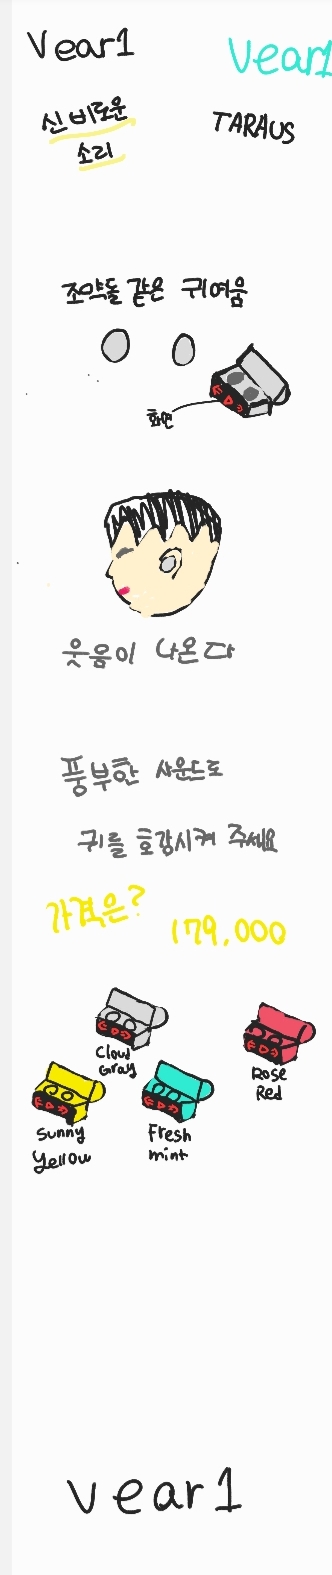 Vear1
Vear1
신비로운
소리
TARAUS
조약돌 같은 귀여움
화면
웃음이 나온다
풍부한 사운드로
귀를 호강시켜 주세요
가격은?
179,000
Cloud
Gray
Rose
Red
Sunny
Yellow
Fresh
mint
vear1